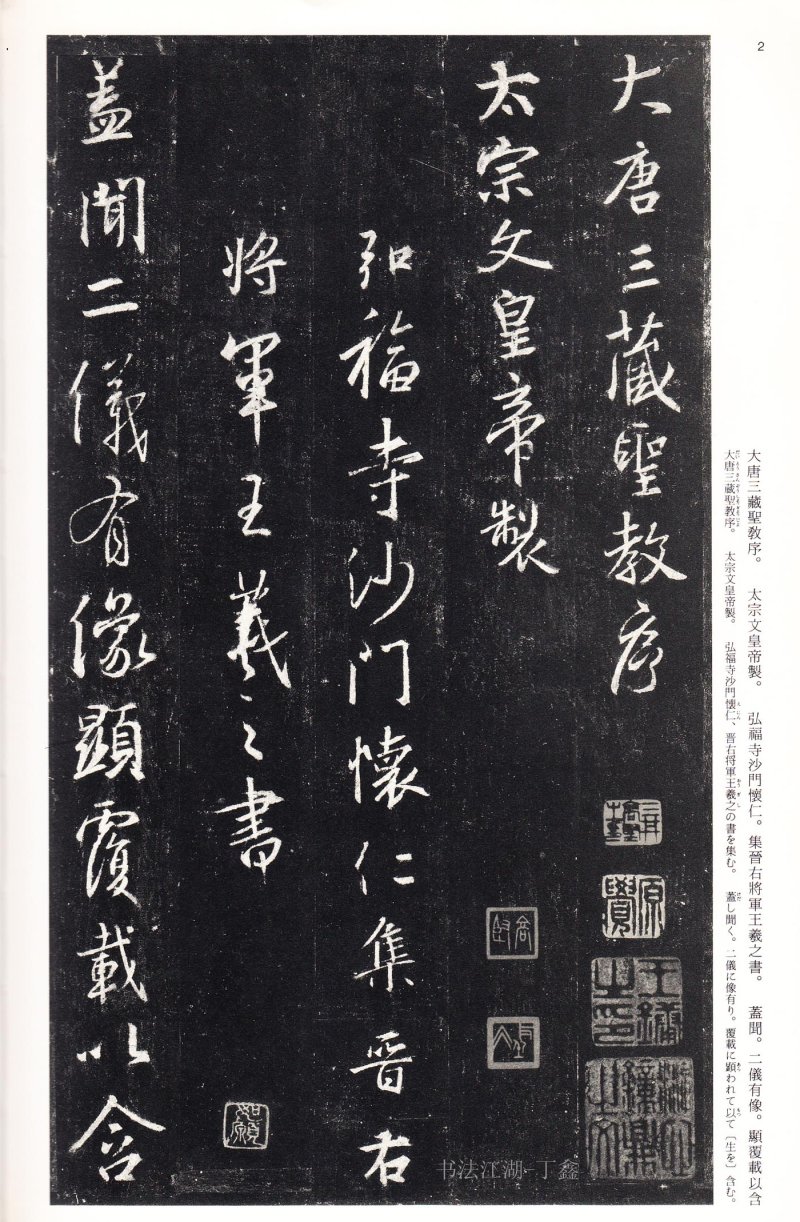 2
大唐三藏聖教序。　太宗文皇帝製。　弘福寺沙門懷仁。集晉右將軍王羲之書。　蓋聞。二儀有像。顯覆載以含
大唐三蔵聖教序。　太宗文皇帝製。　弘福寺沙門懐仁、晋右将軍王羲之の書を集む。　蓋し聞く。二儀に像有り。覆載に顕われて以て〔生を〕含む。
大唐三藏聖教序
太宗文皇帝製
弘福寺沙門懷仁集晉右
將軍王羲之書
蓋聞二儀有像顯覆載以含
如願
书法江湖-丁鑫